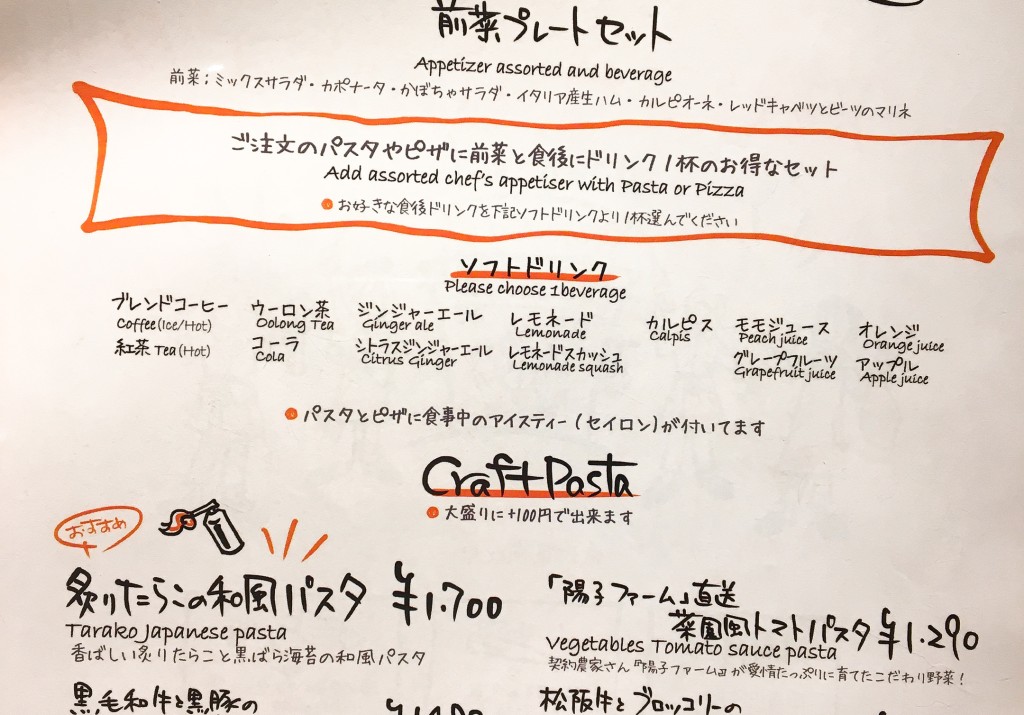 前菜プレートセット
Appetizer assorted and beverage
前菜；ミックスサラダ・カポナータ・かぼちゃサラダ・イタリア産生ハム・カルピオーネ・レッドキャベツとビーツのマリネ
ご注文のパスタやピザに前菜と食後にドリンク1杯のお得なセット
Add assorted chef's appetiser with Pasta or Pizza
お好きな食後ドリンクを下記ソフトドリンクより1杯選んでください
ソフトドリンク
Please choose 1beverage
ブレンドコーヒー ウーロン茶 ジンジャーエール レモネード カルピス モモジュース オレンジ
Coffee(Ice/Hot) Oolong Tea Ginger ale Lemonade Calpis Peach juice Orange juice
紅茶 Tea(Hot) コーラ シトラスジンジャーエール レモネードスカッシュ グレープフルーツ アップル
Cola Citrus Ginger Lemonade squash Grapefruit juice Apple juice
パスタとピザに食事中のアイスティー(セイロン)が付いてます
Craft Pasta
大盛りに+100円で出来ます
おすすめ
炙りたらこの和風パスタ ¥1.700
Tarako Japanese pasta
香ばしい炙りたらこと黒ばら海苔の和風パスタ
「陽子ファーム」直送
菜園風トマトパスタ ¥1.290
Vegetables Tomato sauce pasta
契約農家さん『陽子ファーム』が愛情たっぷりに育てたこだわり野菜！
黒毛和牛と黒豚の
松阪牛とブロッコリーの